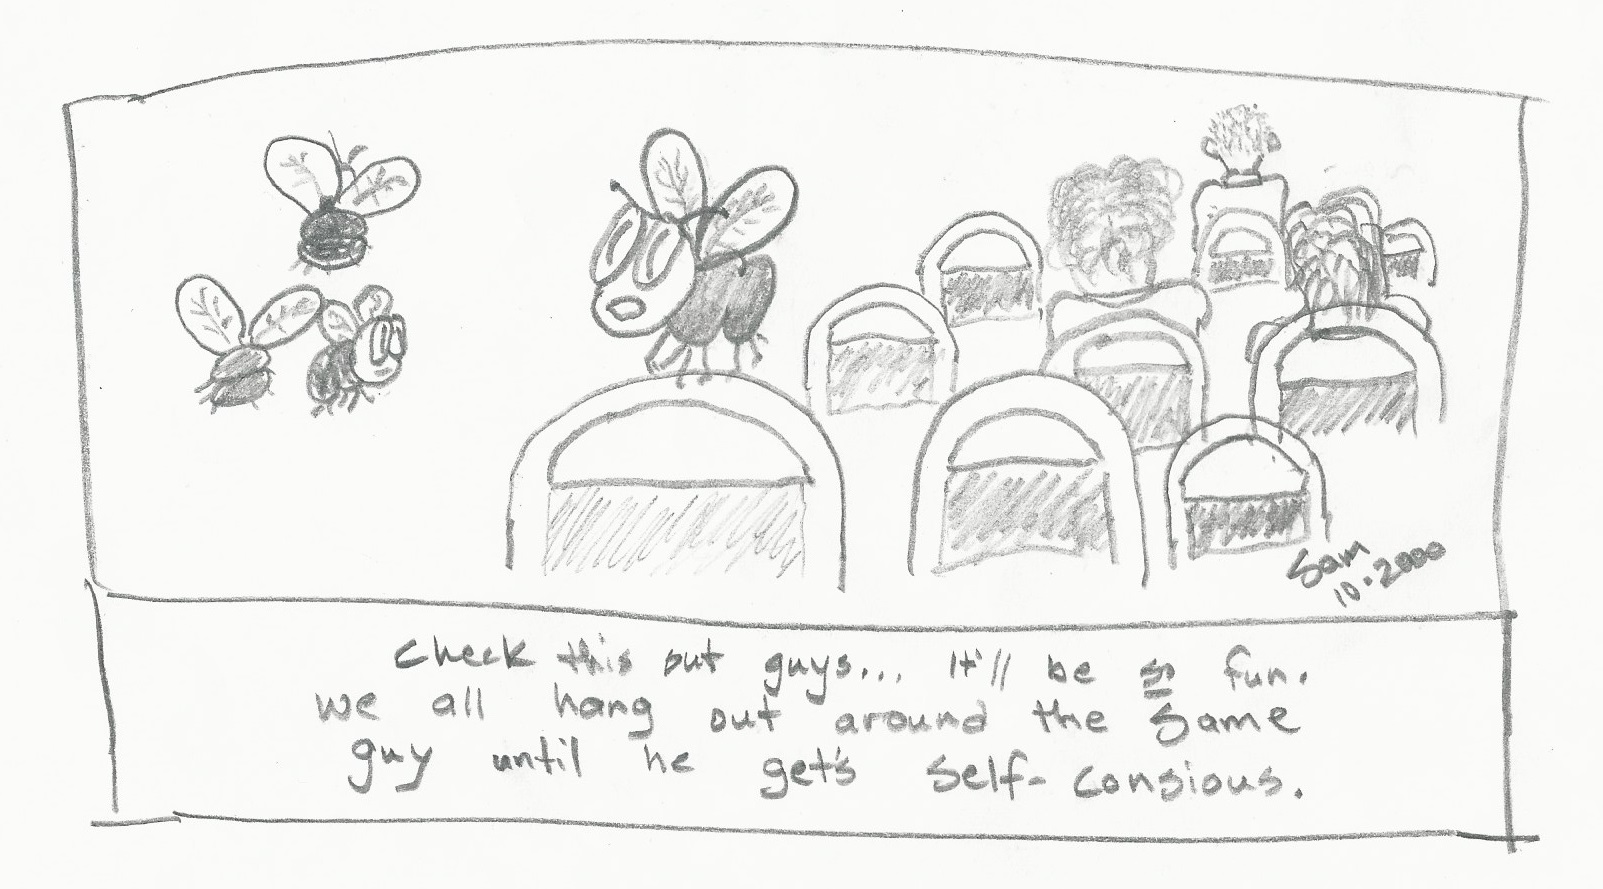 Sam
10·2000
Check this out guys... It'll be so fun.
we all hang out around the same
guy until he get's self-consious.